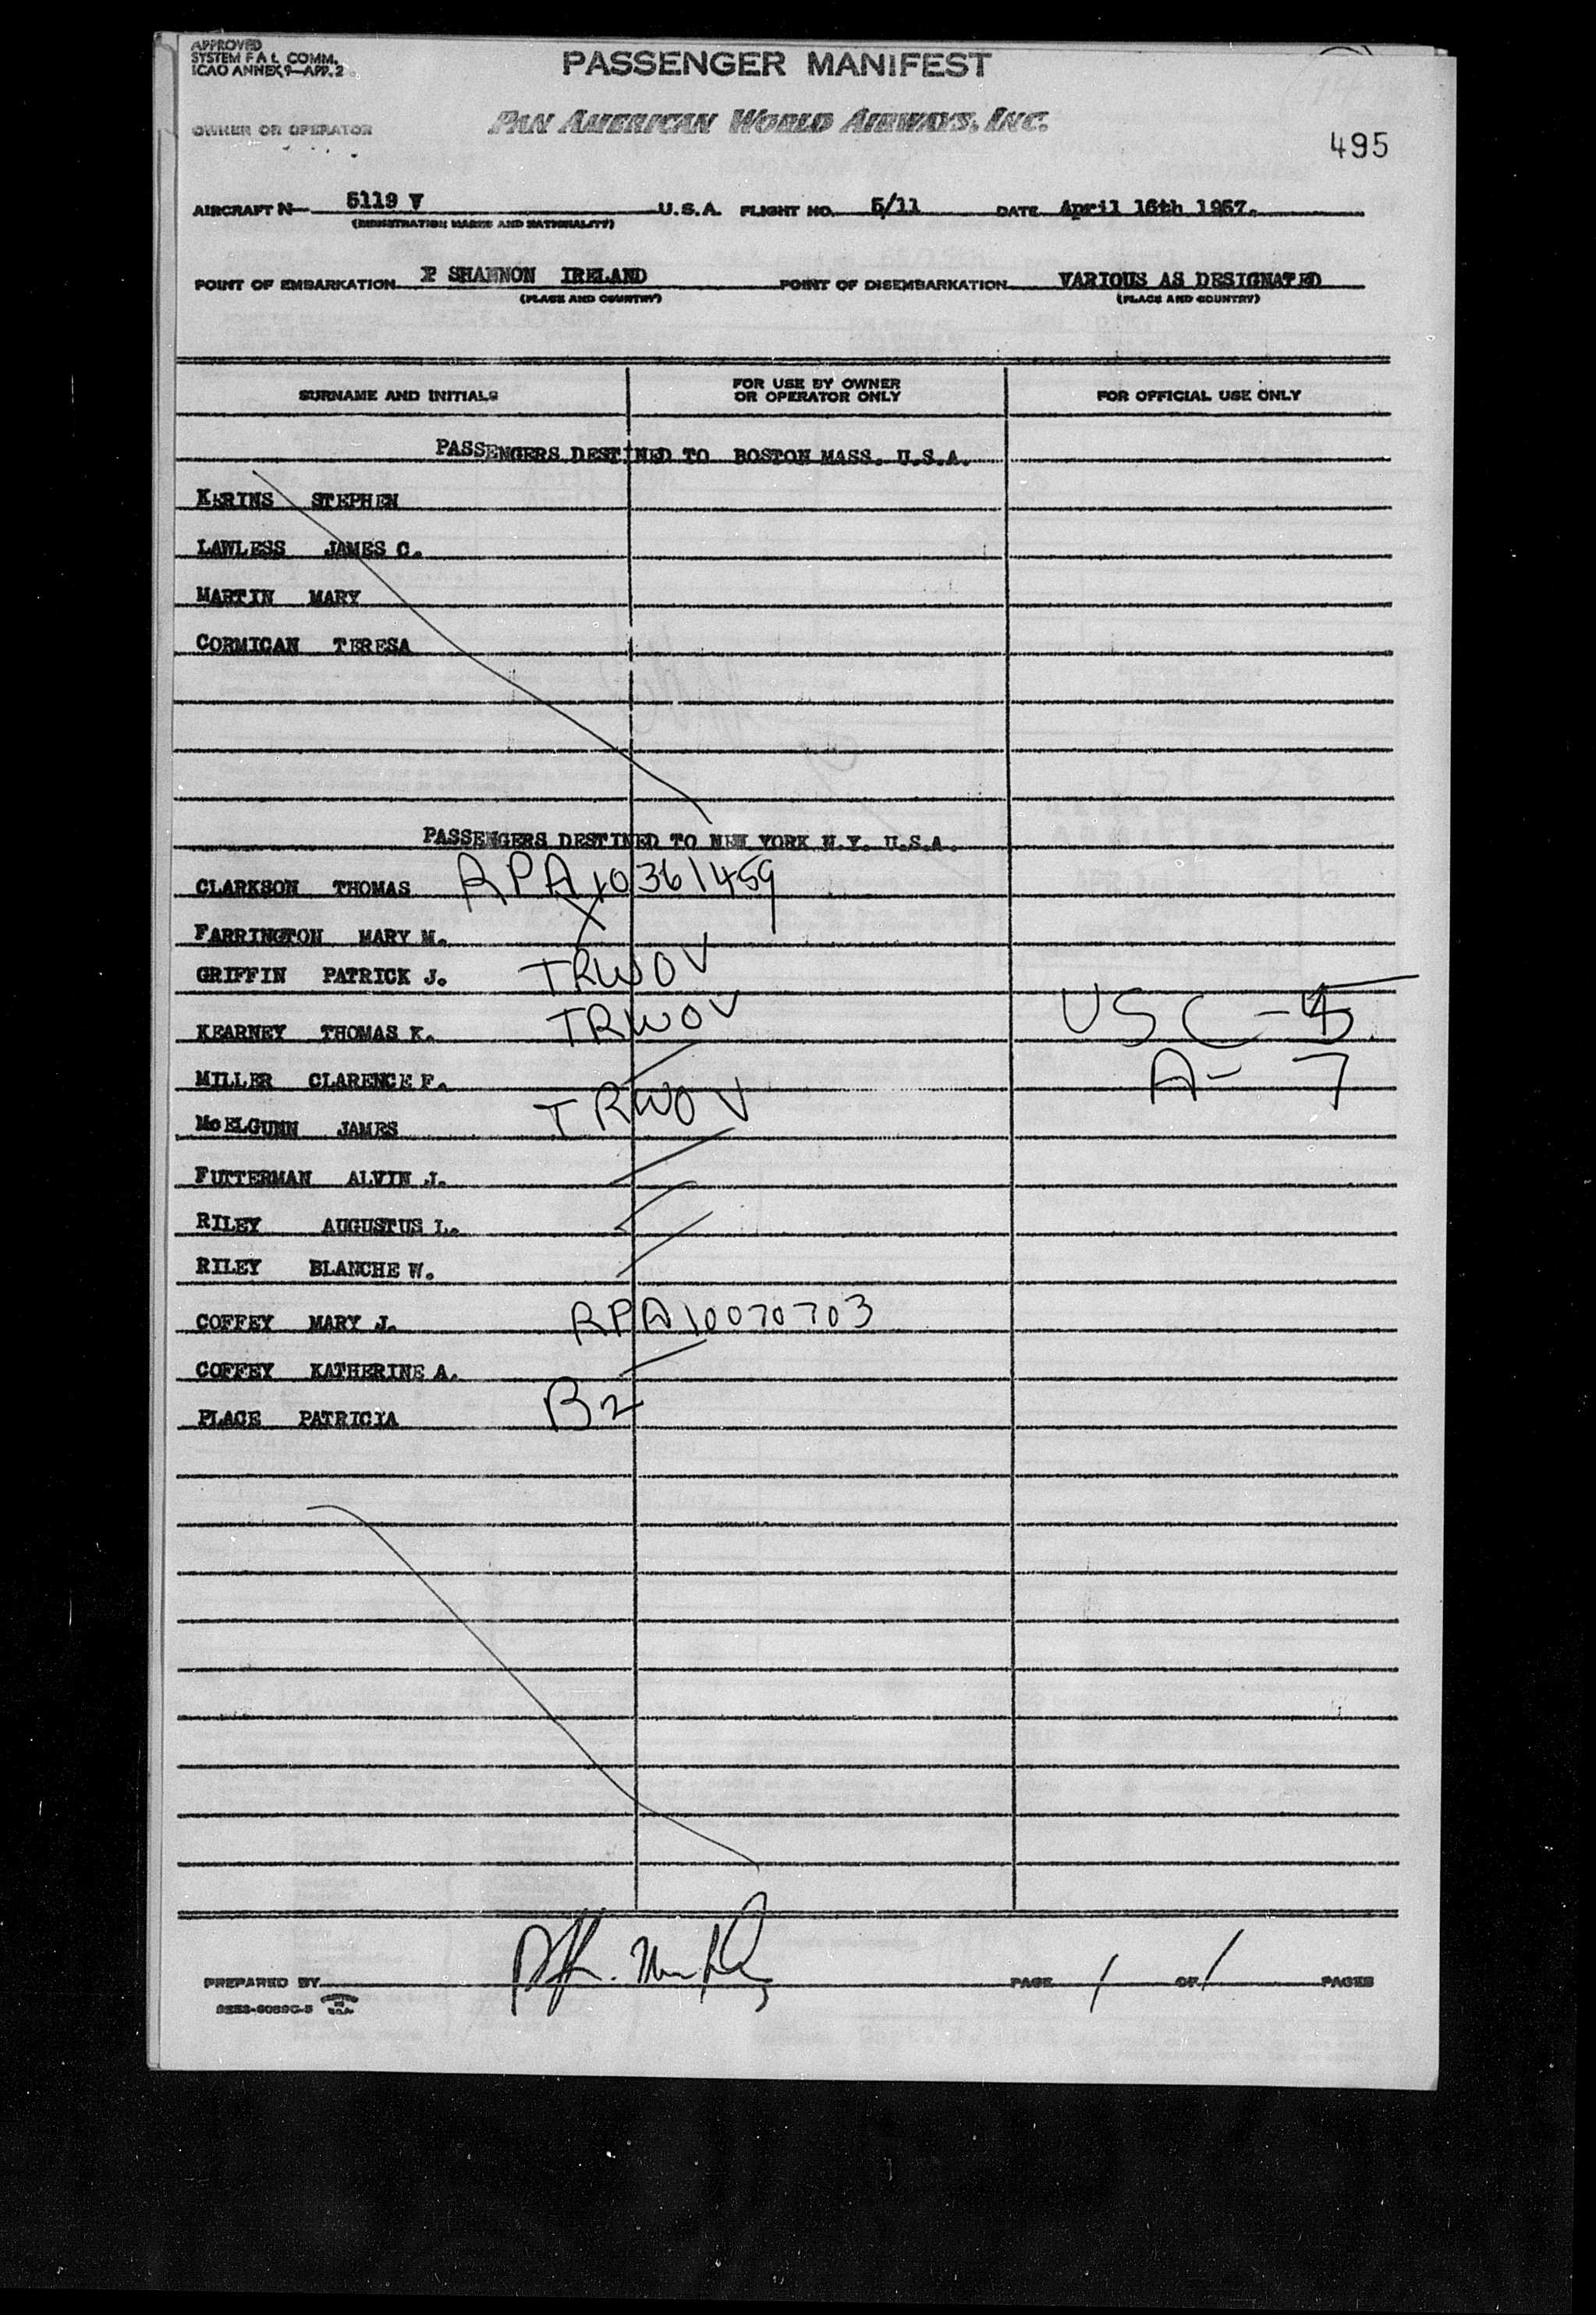 APPROVED
SYSTEM F A L COMM.
ICAO ANNEX 9—APP. 2
PASSENGER MANIFEST
OWNER OR OPERATOR
PAN AMERICAN WORLD AIRWAYS, INC.
495
AIRCRAFT N— 5119 V U.S.A. FLIGHT NO. 5/11 DATE April 16th 1957.
(REGISTRATION MARKS AND NATIONALITY)
POINT OF EMBARKATION SHANNON IRELAND POINT OF DISEMBARKATION VARIOUS AS DESIGNATED
(PLACE AND COUNTRY) (PLACE AND COUNTRY)
SURNAME AND INITIALS FOR USE BY OWNER OR OPERATOR ONLY FOR OFFICIAL USE ONLY
PASSENGERS DESTINED TO BOSTON MASS. U.S.A.
KERINS STEPHEN
LAWLESS JAMES C.
MARTIN MARY
CORMICAN TERESA
PASSENGERS DESTINED TO NEW YORK N.Y. U.S.A.
CLARKSON THOMAS RPA 10361459
FARRINGTON MARY M.
GRIFFIN PATRICK J. TRWOV
KEARNEY THOMAS K. TRWOV USC-5
MILLER CLARENCE F. A- 7
McELGUNN JAMES TRWOV
FUTTERMAN ALVIN J.
RILEY AUGUSTUS L.
RILEY BLANCHE W.
COFFEY MARY J. RPA10070703
COFFEY KATHERINE A.
PLACE PATRICIA B2
PREPARED BY PAGE 1 OF 1 PAGES